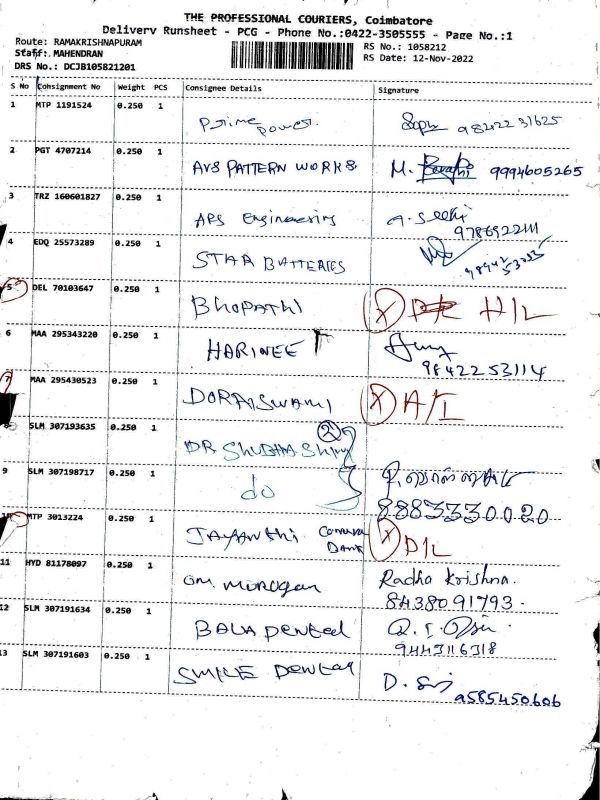 THE PROFESSIONAL COURIERS, Coimbatore
Delivery Runsheet - PCG - Phone No.:0422-3505555 - Page No.:1
Route: RAMAKRISHNAPURAM
RS No.: 1058212
Staff: MAHENDRAN
RS Date: 12-Nov-2022
DRS No.: DCJB105821201
S No Consignment No Weight PCS Consignee Details Signature
1 MTP 1191524 0.250 1 Prime power. 9842231625
2 PGT 4707214 0.250 1 AVS PATTERN WORKS M. 9994605265
3 TRZ 160601827 0.250 1 APS Engineering
4 EDQ 25573289 0.250 1 STAR BATTERIES
5 DEL 70103647 0.250 1 Bhopathi X H/L
6 MAA 295343220 0.250 1 HARINEE T 9842253114
7 MAA 295430523 0.250 1 DORAISWAMI X A/I
8 SLM 307193635 0.250 1 DR SHUBHA 2
9 SLM 307198717 0.250 1 do 8883330020
10 MTP 3013224 0.250 1 JAYANTHI X D/L
11 HYD 81178097 0.250 1 OM MUROGAN Radha Krishna. 8438091793.
12 SLM 307191634 0.250 1 BALA DENTAL 9443116318
13 SLM 307191603 0.250 1 SMILE DENTAL D. 9585450606